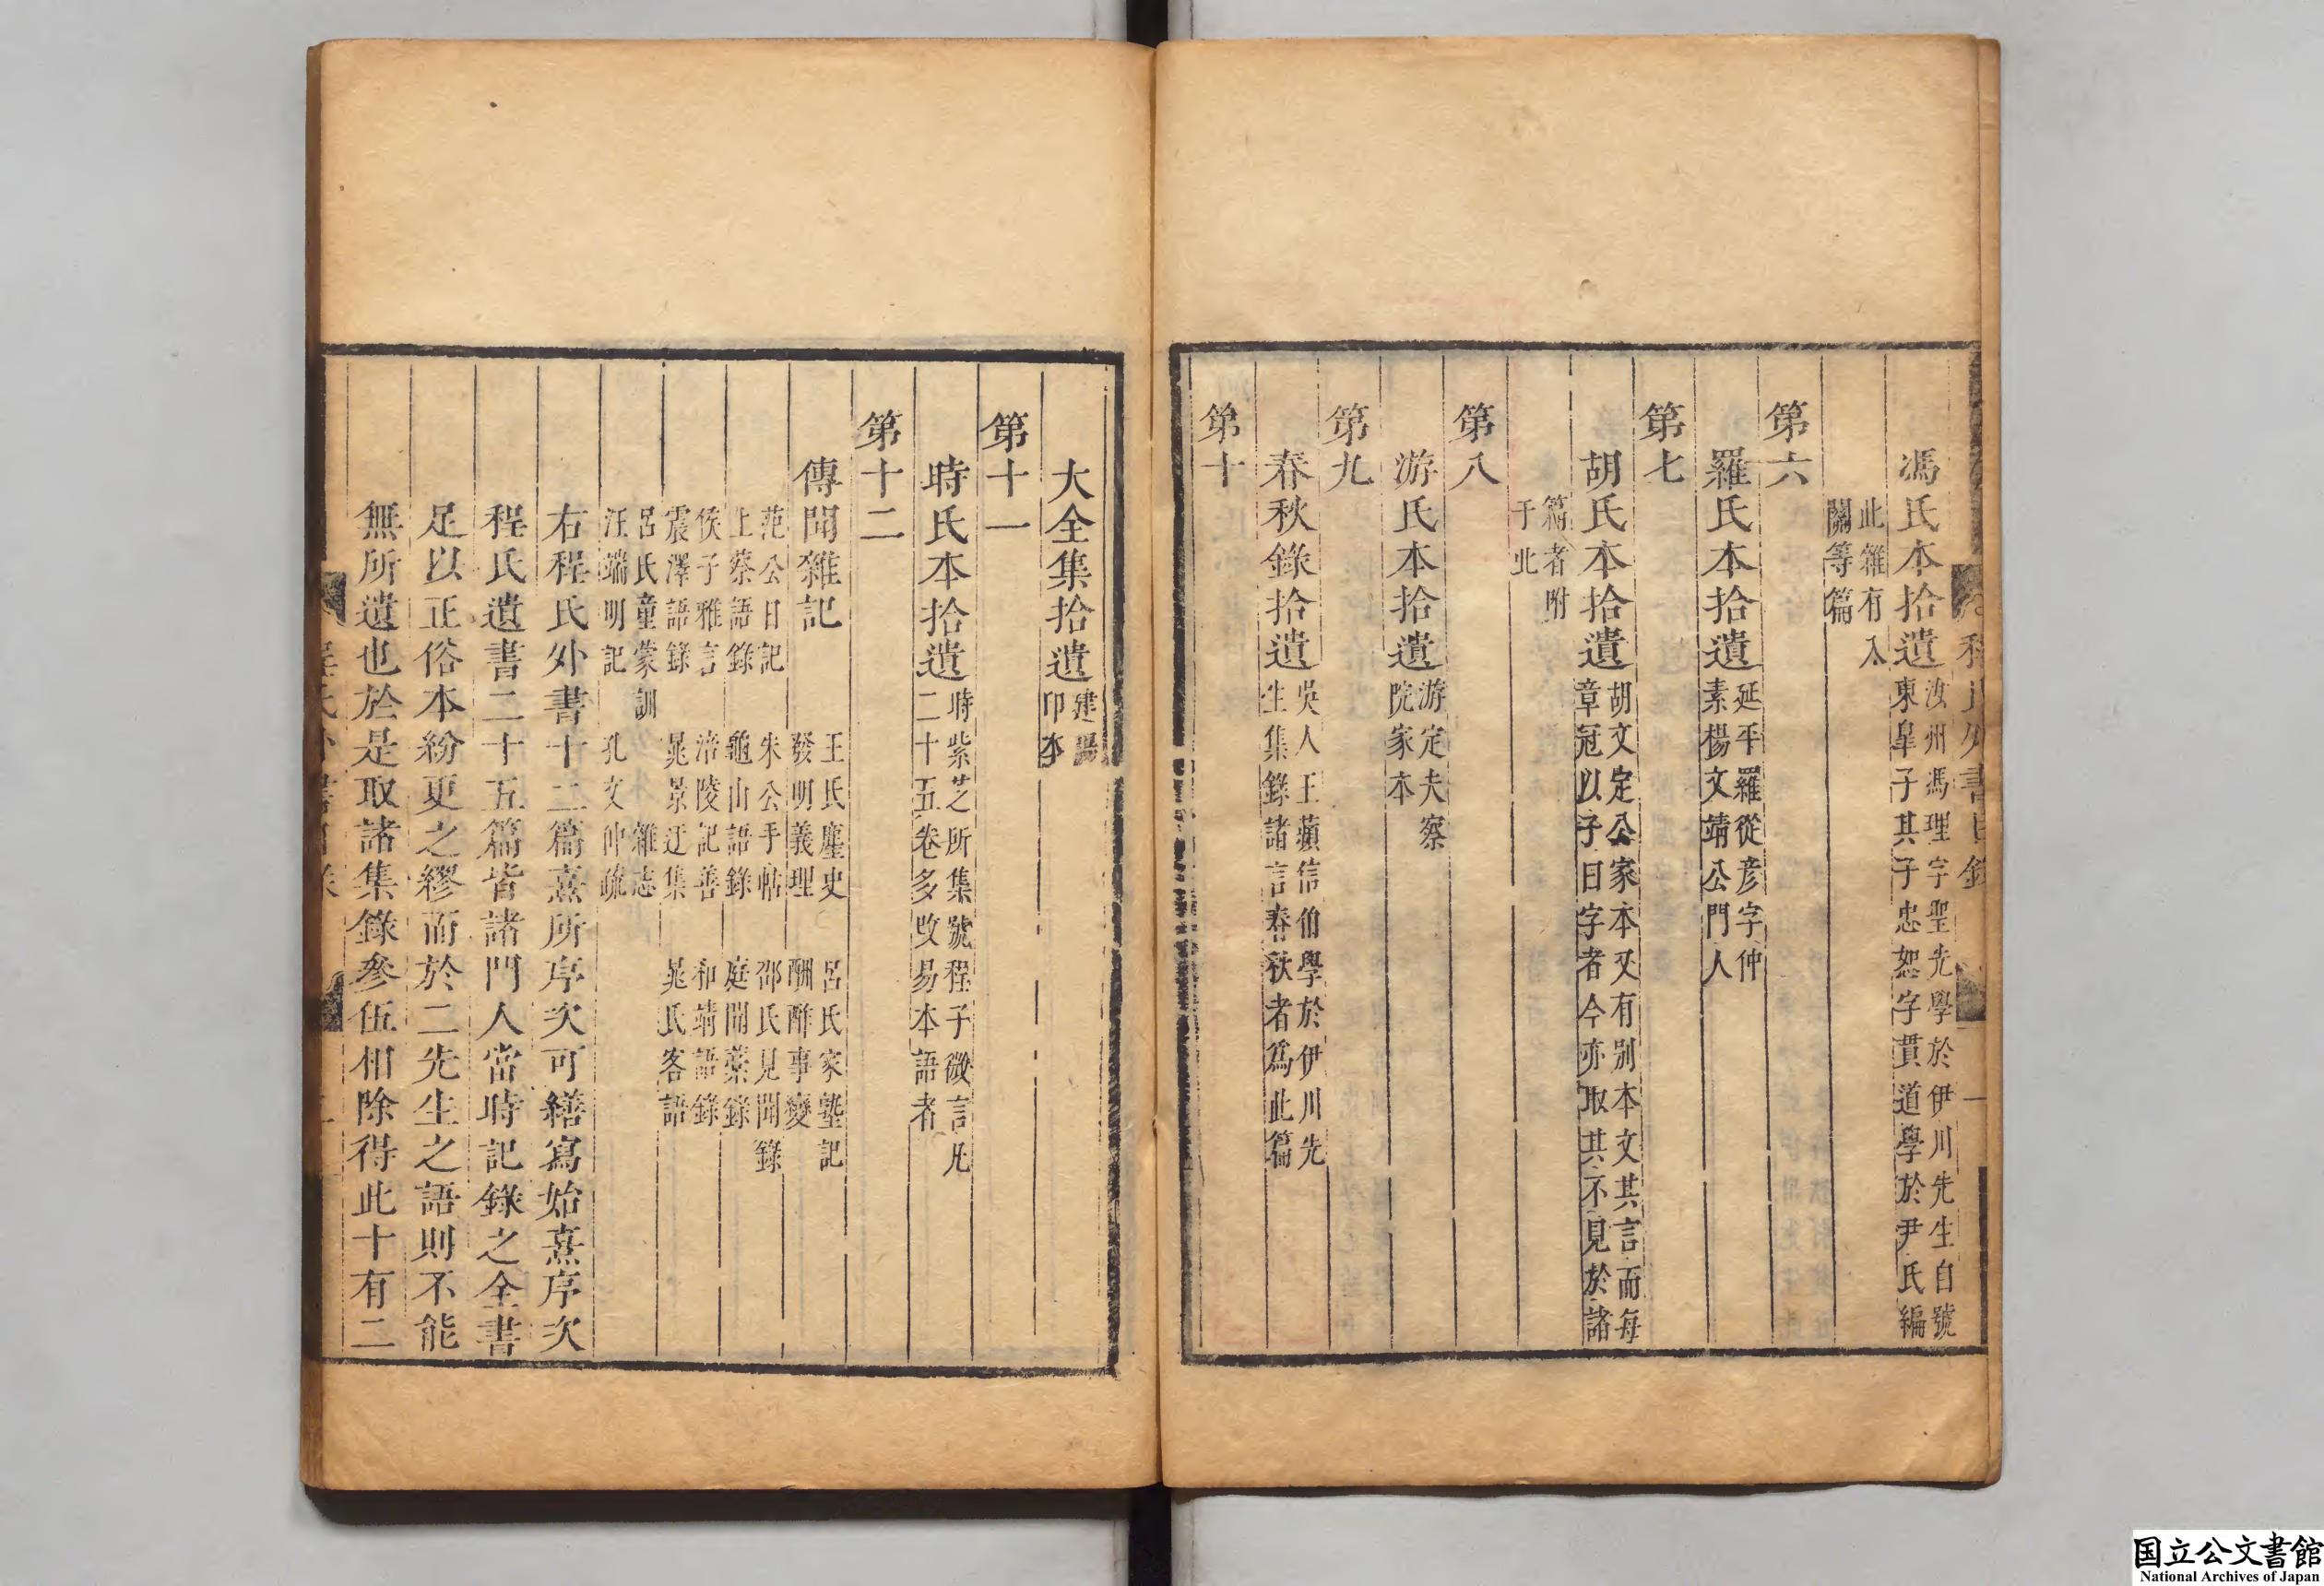 馮氏本拾遺汝州馮理字聖先學於伊川先生自號
東皐子其子忠恕字貫道學於尹氏編
此雜有入
關等篇
第六
羅氏本拾遺延平羅從彥字仲
素楊文靖公門人
第七
胡氏本拾遺胡文定公家本又有別本文其言而每
章冠以子曰字者今亦取其不見於諸
篇者附
于此
第八
游氏本拾遺游定夫察
院家本
第九
春秋錄拾遺吳人王蘋信伯學於伊川先
生集錄諸言春秋者爲此篇
第十
大全集拾遺建陽
印本
第十一
時氏本拾遺時紫芝所集號程子微言凡
二十五卷多改易本語者
第十二
傳聞雜記 王氏麈史 呂氏家塾記
發明義理 酬酢事變
范公日記 朱公手帖 邵氏見聞錄
上蔡語錄 龜山語錄 庭聞藁錄
侯子雅言 涪陵記善 和靖語錄
震澤語錄 晁景迂集 晁氏客語
呂氏童蒙訓 雜志
汪端明記 孔文仲疏
右程氏外書十二篇熹所序次可繕寫始熹序次
程氏遺書二十五篇皆諸門人當時記錄之全書
足以正俗本紛更之繆而於二先生之語則不能
無所遺也於是取諸集錄參伍相除得此十有二
国立公文書館
National Archives of Japan